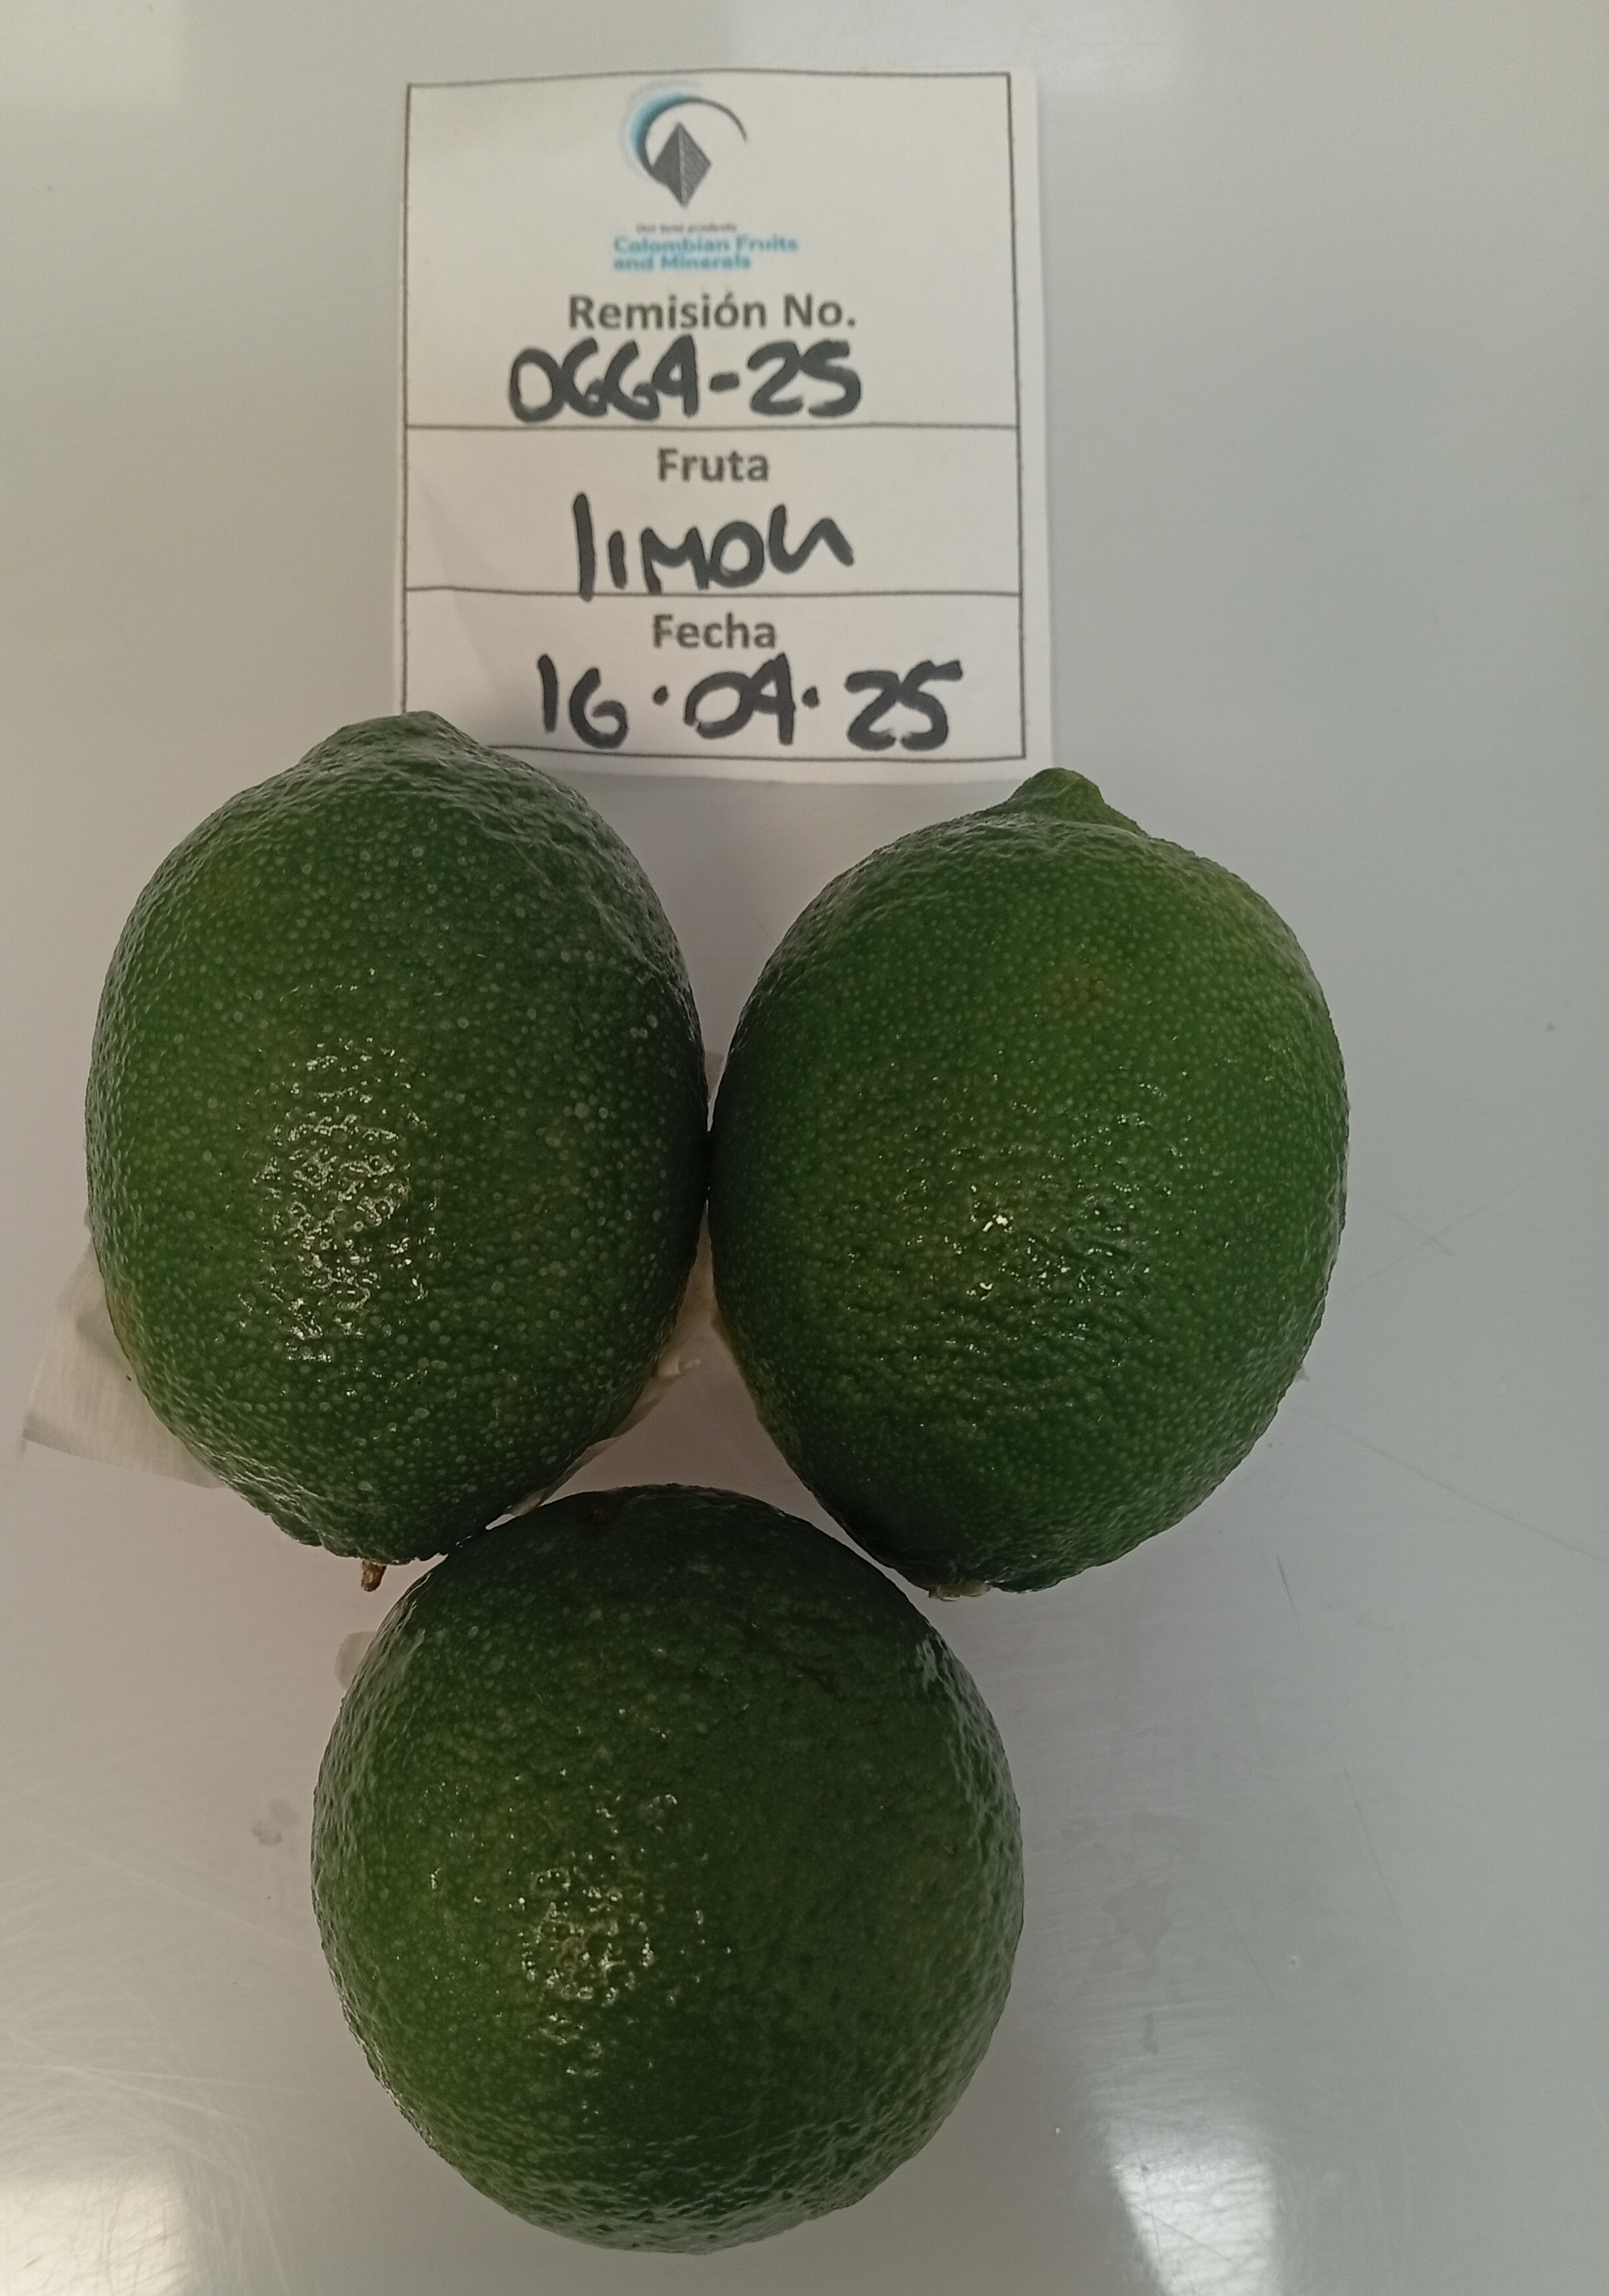 Our best products
Colombian Fruits
and Minerals
Remisión No.
0664-25
Fruta
limon
Fecha
16.04.25